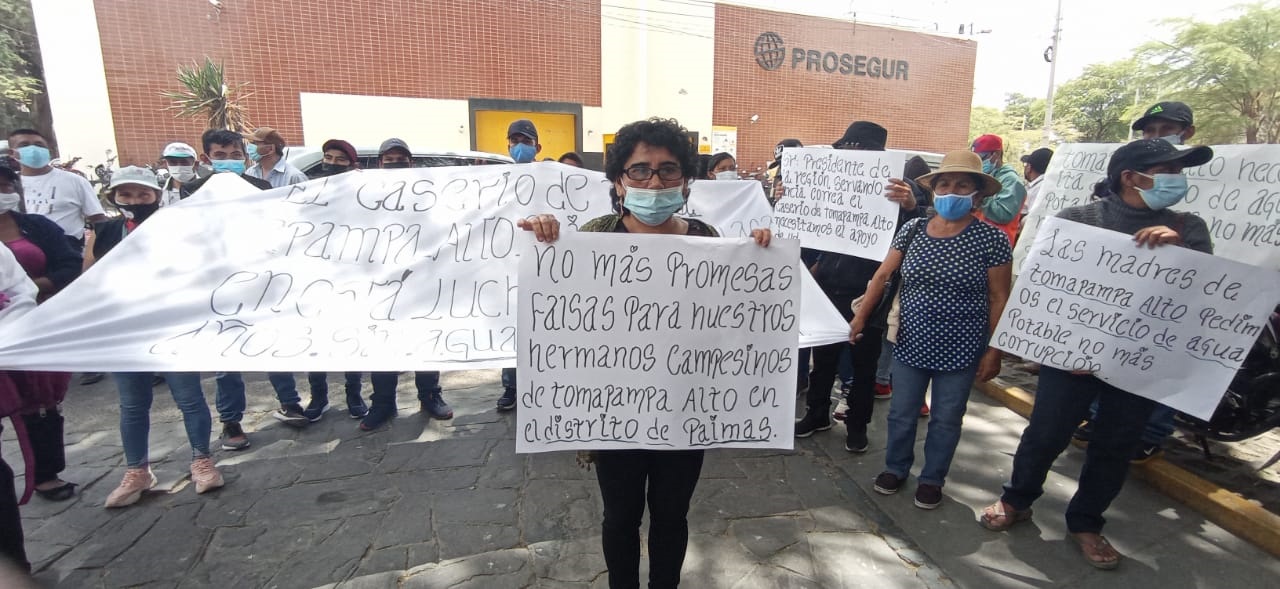 PROSEGUR
EL caserío de
Pampa Alto
Luch
Años.sin agua
no más Promesas
Falsas Para nuestros
hermanos campesinos
de tomapampa Alto en
el distrito de Paimas.
Sr. Presidente de
la región servando
correa el
caserío de tomapampa Alto
necesitamos el apoyo
de agua
no más
Las madres de
tomapampa Alto Pedim
os el servicio de agua
Potable no más
corrupción